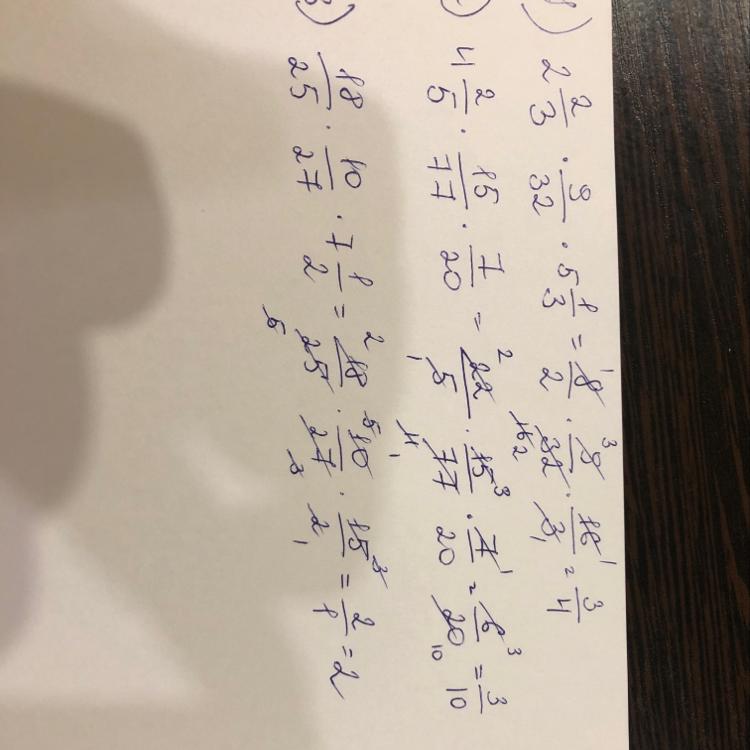 1) 2 2/3 · 9/32 · 5 1/3 = 8/2 · 9/32 · 16/3 = 3/4
4 2/5 · 15/77 · 7/20 = 22/5 · 15/77 · 7/20 = 6/20 = 3/10
3) 18/25 · 10/27 · 7 1/2 = 18/25 · 10/27 · 15/2 = 2/1 = 2